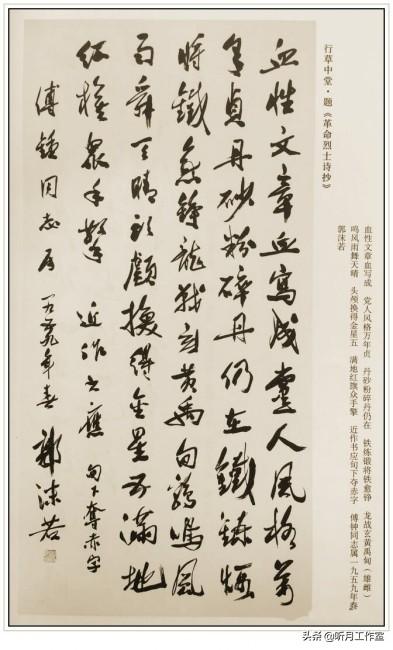 行草中堂·题《革命烈士诗抄》
血性文章血写成 党人风格万年贞 丹砂粉碎丹仍在 铁炼锻将铁愈铮 龙战玄黄禹甸（雄雌）
鸣风雨舞天晴 头颅换得金星五 满地红旗众手擎 近作书应句下夺赤字 傅钟同志属一九五九年春
郭沫若
血性文章血寫成黨人風格萬
年貞丹砂粉碎丹仍在鐵鍊煅
將鐵愈錚龍戰玄黃禹甸鳴風
雨舞天晴頭顱換得金星五滿地
紅旗眾手擎 近作書應 句下奪赤字
傅鍾同志属 一九五九年春 郭沫若
头条 @听月工作室